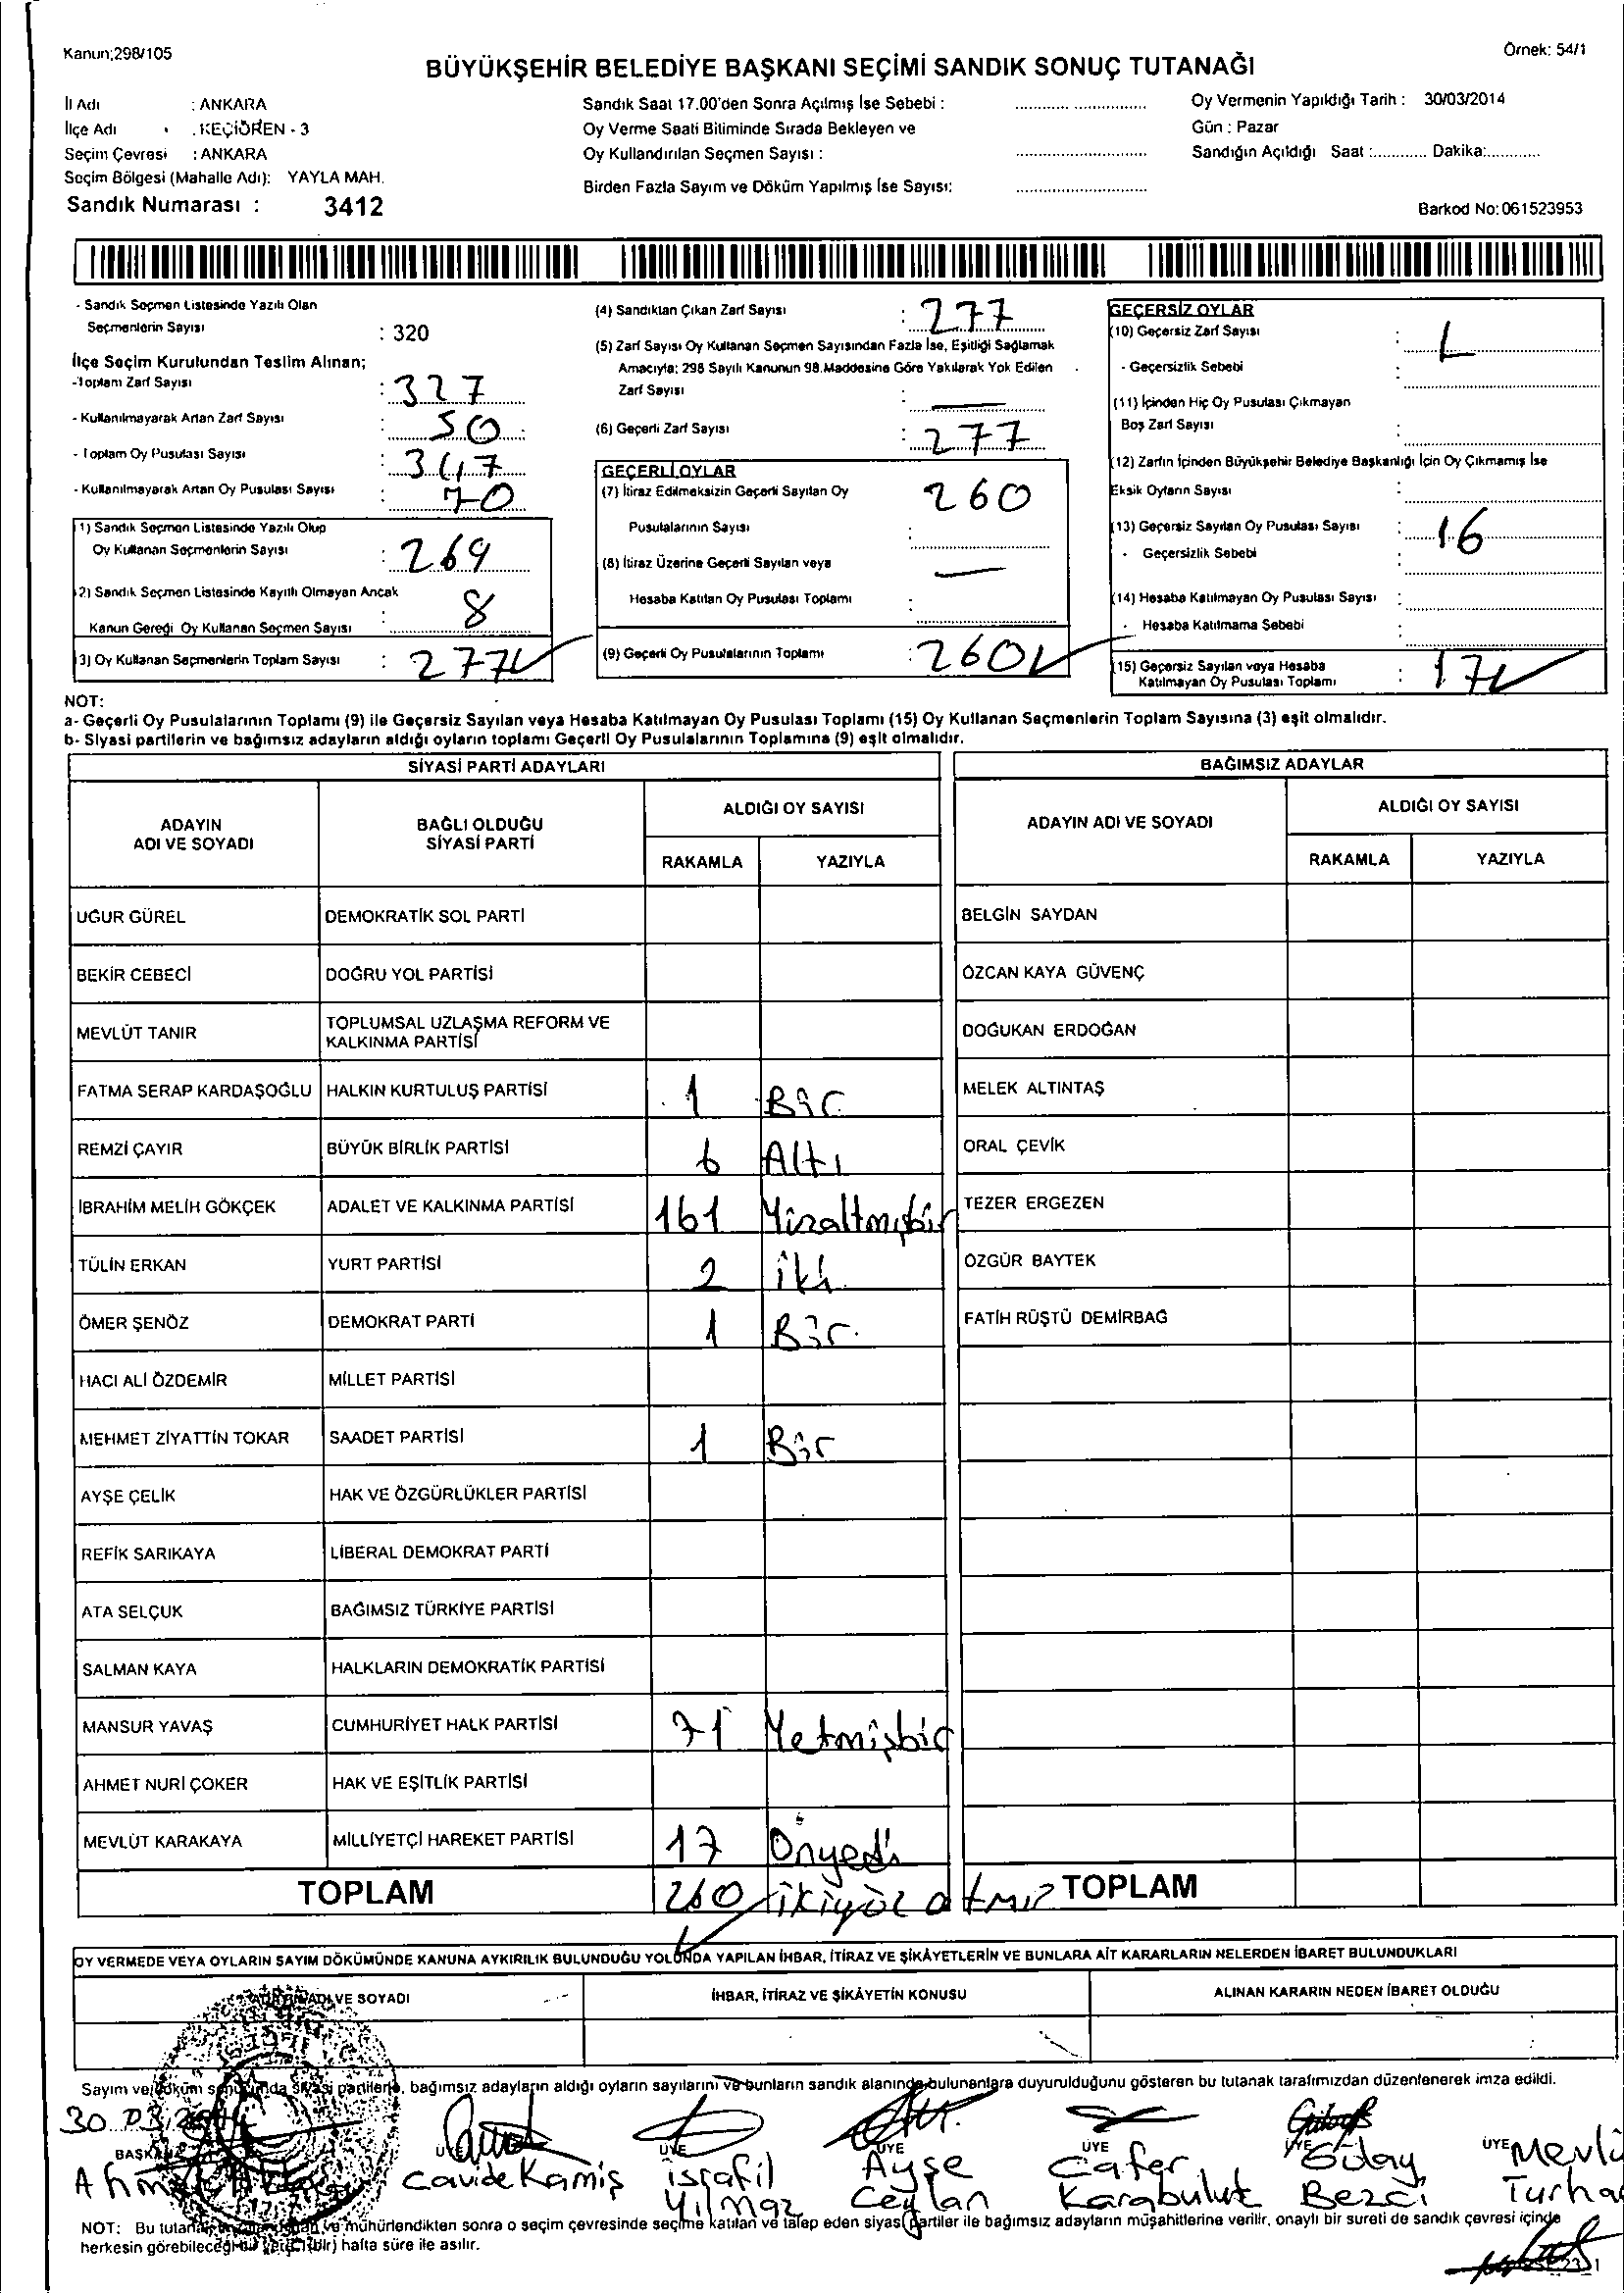 Kanun;298/105
Örnek: 54/1
BÜYÜKŞEHİR BELEDİYE BAŞKANI SEÇİMİ SANDIK SONUÇ TUTANAĞI
İl Adı : ANKARA
İlçe Adı : KEÇİÖREN - 3
Seçim Çevresi : ANKARA
Seçim Bölgesi (Mahalle Adı): YAYLA MAH.
Sandık Numarası : 3412
Sandık Saat 17.00'den Sonra Açılmış İse Sebebi :
Oy Verme Saati Bitiminde Sırada Bekleyen ve
Oy Kullandırılan Seçmen Sayısı :
Birden Fazla Sayım ve Döküm Yapılmış İse Sayısı:
Oy Vermenin Yapıldığı Tarih : 30/03/2014
Gün : Pazar
Sandığın Açıldığı Saat :............ Dakika:............
Barkod No: 061523953
- Sandık Seçmen Listesinde Yazılı Olan
Seçmenlerin Sayısı : 320
İlçe Seçim Kurulundan Teslim Alınan;
-Toplam Zarf Sayısı : 327
- Kullanılmayarak Artan Zarf Sayısı : 50
- Toplam Oy Pusulası Sayısı : 347
- Kullanılmayarak Artan Oy Pusulası Sayısı : 70
1) Sandık Seçmen Listesinde Yazılı Olup
Oy Kullanan Seçmenlerin Sayısı : 269
2) Sandık Seçmen Listesinde Kayıtlı Olmayan Ancak
Kanun Gereği Oy Kullanan Seçmen Sayısı : 8
3) Oy Kullanan Seçmenlerin Toplam Sayısı : 277
(4) Sandıktan Çıkan Zarf Sayısı : 277
(5) Zarf Sayısı Oy Kullanan Seçmen Sayısından Fazla İse, Eşitliği Sağlamak
Amacıyla; 298 Sayılı Kanunun 98.Maddesine Göre Yakılarak Yok Edilen
Zarf Sayısı : —
(6) Geçerli Zarf Sayısı : 277
GEÇERLİ OYLAR
(7) İtiraz Edilmeksizin Geçerli Sayılan Oy
Pusulalarının Sayısı : 260
(8) İtiraz Üzerine Geçerli Sayılan veya
Hesaba Katılan Oy Pusulası Toplamı : —
(9) Geçerli Oy Pusulalarının Toplamı : 260
GEÇERSİZ OYLAR
(10) Geçersiz Zarf Sayısı :
- Geçersizlik Sebebi :
(11) İçinden Hiç Oy Pusulası Çıkmayan
Boş Zarf Sayısı :
(12) Zarfın İçinden Büyükşehir Belediye Başkanlığı İçin Oy Çıkmamış İse
Eksik Oyların Sayısı :
(13) Geçersiz Sayılan Oy Pusulası Sayısı : 16
- Geçersizlik Sebebi :
(14) Hesaba Katılmayan Oy Pusulası Sayısı :
- Hesaba Katılmama Sebebi :
(15) Geçersiz Sayılan veya Hesaba
Katılmayan Oy Pusulası Toplamı : 17
NOT:
a- Geçerli Oy Pusulalarının Toplamı (9) ile Geçersiz Sayılan veya Hesaba Katılmayan Oy Pusulası Toplamı (15) Oy Kullanan Seçmenlerin Toplam Sayısına (3) eşit olmalıdır.
b- Siyasi partilerin ve bağımsız adayların aldığı oyların toplamı Geçerli Oy Pusulalarının Toplamına (9) eşit olmalıdır.
SİYASİ PARTİ ADAYLARI
ADAYIN
ADI VE SOYADI
BAĞLI OLDUĞU
SİYASİ PARTİ
ALDIĞI OY SAYISI
RAKAMLA YAZIYLA
UĞUR GÜREL DEMOKRATİK SOL PARTİ
BEKİR CEBECİ DOĞRU YOL PARTİSİ
MEVLÜT TANIR TOPLUMSAL UZLAŞMA REFORM VE
KALKINMA PARTİSİ
FATMA SERAP KARDAŞOĞLU HALKIN KURTULUŞ PARTİSİ 1 Bir
REMZİ ÇAYIR BÜYÜK BİRLİK PARTİSİ 6 Altı
İBRAHİM MELİH GÖKÇEK ADALET VE KALKINMA PARTİSİ 161 Yüzaltmışbir
TÜLİN ERKAN YURT PARTİSİ 2 iki
ÖMER ŞENÖZ DEMOKRAT PARTİ 1 Bir
HACI ALİ ÖZDEMİR MİLLET PARTİSİ
MEHMET ZİYATTİN TOKAR SAADET PARTİSİ 1 Bir
AYŞE ÇELİK HAK VE ÖZGÜRLÜKLER PARTİSİ
REFİK SARIKAYA LİBERAL DEMOKRAT PARTİ
ATA SELÇUK BAĞIMSIZ TÜRKİYE PARTİSİ
SALMAN KAYA HALKLARIN DEMOKRATİK PARTİSİ
MANSUR YAVAŞ CUMHURİYET HALK PARTİSİ 71 Yetmişbir
AHMET NURİ ÇOKER HAK VE EŞİTLİK PARTİSİ
MEVLÜT KARAKAYA MİLLİYETÇİ HAREKET PARTİSİ 17 Onyedi
TOPLAM 260 ikiyüz atmış
BAĞIMSIZ ADAYLAR
ADAYIN ADI VE SOYADI
ALDIĞI OY SAYISI
RAKAMLA YAZIYLA
BELGİN SAYDAN
ÖZCAN KAYA GÜVENÇ
DOĞUKAN ERDOĞAN
MELEK ALTINTAŞ
ORAL ÇEVİK
TEZER ERGEZEN
ÖZGÜR BAYTEK
FATİH RÜŞTÜ DEMİRBAĞ
TOPLAM
OY VERMEDE VEYA OYLARIN SAYIM DÖKÜMÜNDE KANUNA AYKIRILIK BULUNDUĞU YOLUNDA YAPILAN İHBAR, İTİRAZ VE ŞİKÂYETLERİN VE BUNLARA AİT KARARLARIN NELERDEN İBARET BULUNDUKLARI
ADI VE SOYADI
İHBAR, İTİRAZ VE ŞİKÂYETİN KONUSU
ALINAN KARARIN NEDEN İBARET OLDUĞU
Sayım ve döküm sonucunda siyasi partilerle, bağımsız adayların aldığı oyların sayılarını ve bunların sandık alanında bulunanlara duyurulduğunu gösteren bu tutanak tarafımızdan düzenlenerek imza edildi.
30.03.2014
BAŞKAN ÜYE ÜYE ÜYE ÜYE ÜYE ÜYE
Cavide Kamış
İsrafil
Yılmaz
Ayşe
Ceylan
Cafer
Karabulut
Gülay
Bezci
NOT: Bu tutanak ve mühürlendikten sonra o seçim çevresinde seçime katılan ve talep eden siyasi partiler ile bağımsız adayların müşahitlerine verilir, onaylı bir sureti de sandık çevresi içinde
herkesin görebileceği bir yere (bir) hafta süre ile asılır.